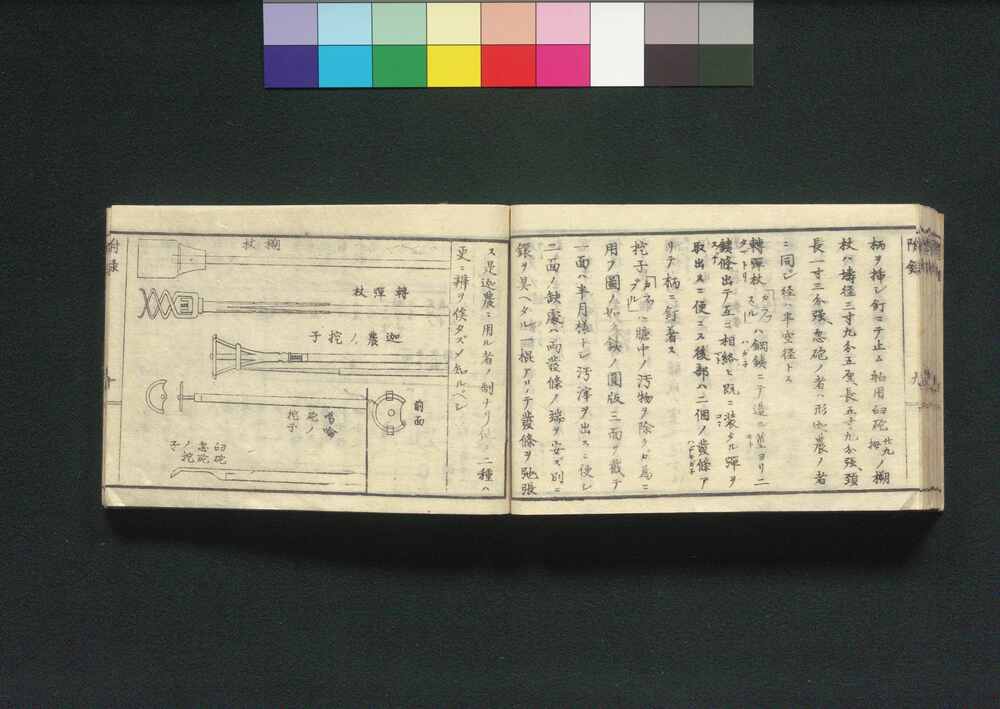 附録
柄ヲ挿シ釘ニテ止ム舶用臼砲廿九拇ノ搠
杖ハ墻径二寸九分五厘長五寸九分強頚
長一寸三分強忽砲ノ者ハ形迦農ノ者
ニ同シ径ハ半空径トス
轉彈杖「カラブスル」ハ鋼鉄ニテ造ル
鋳條出テ互ニ相絡ヒ既ニ装タル弾ヲ
取出スニ便ニス後部ハ二個ノ發條ア
リテ柄ニ釘著ス
挖子ハ膅中ノ汚物ヲ除クカ為ニ
用フ圖ノ如ク鉄ノ圓版二面ヲ截テ
一面ハ半月様トシ汚滓ヲ出スニ便シ
二面ノ缺處ハ両發條ノ端ヲ安ス別ニ
鐶ヲ具ヘタル一槓アリテ發條ヲ弛張
ス是迦農ニ用ル者ノ制ナリ他ノ二種ハ
更ニ辨ヲ俟タズメ知ルベシ
搠杖
轉彈杖
迦農ノ挖子
前面
葛論砲ノ挖子
臼砲忽砲ノ挖子
附録